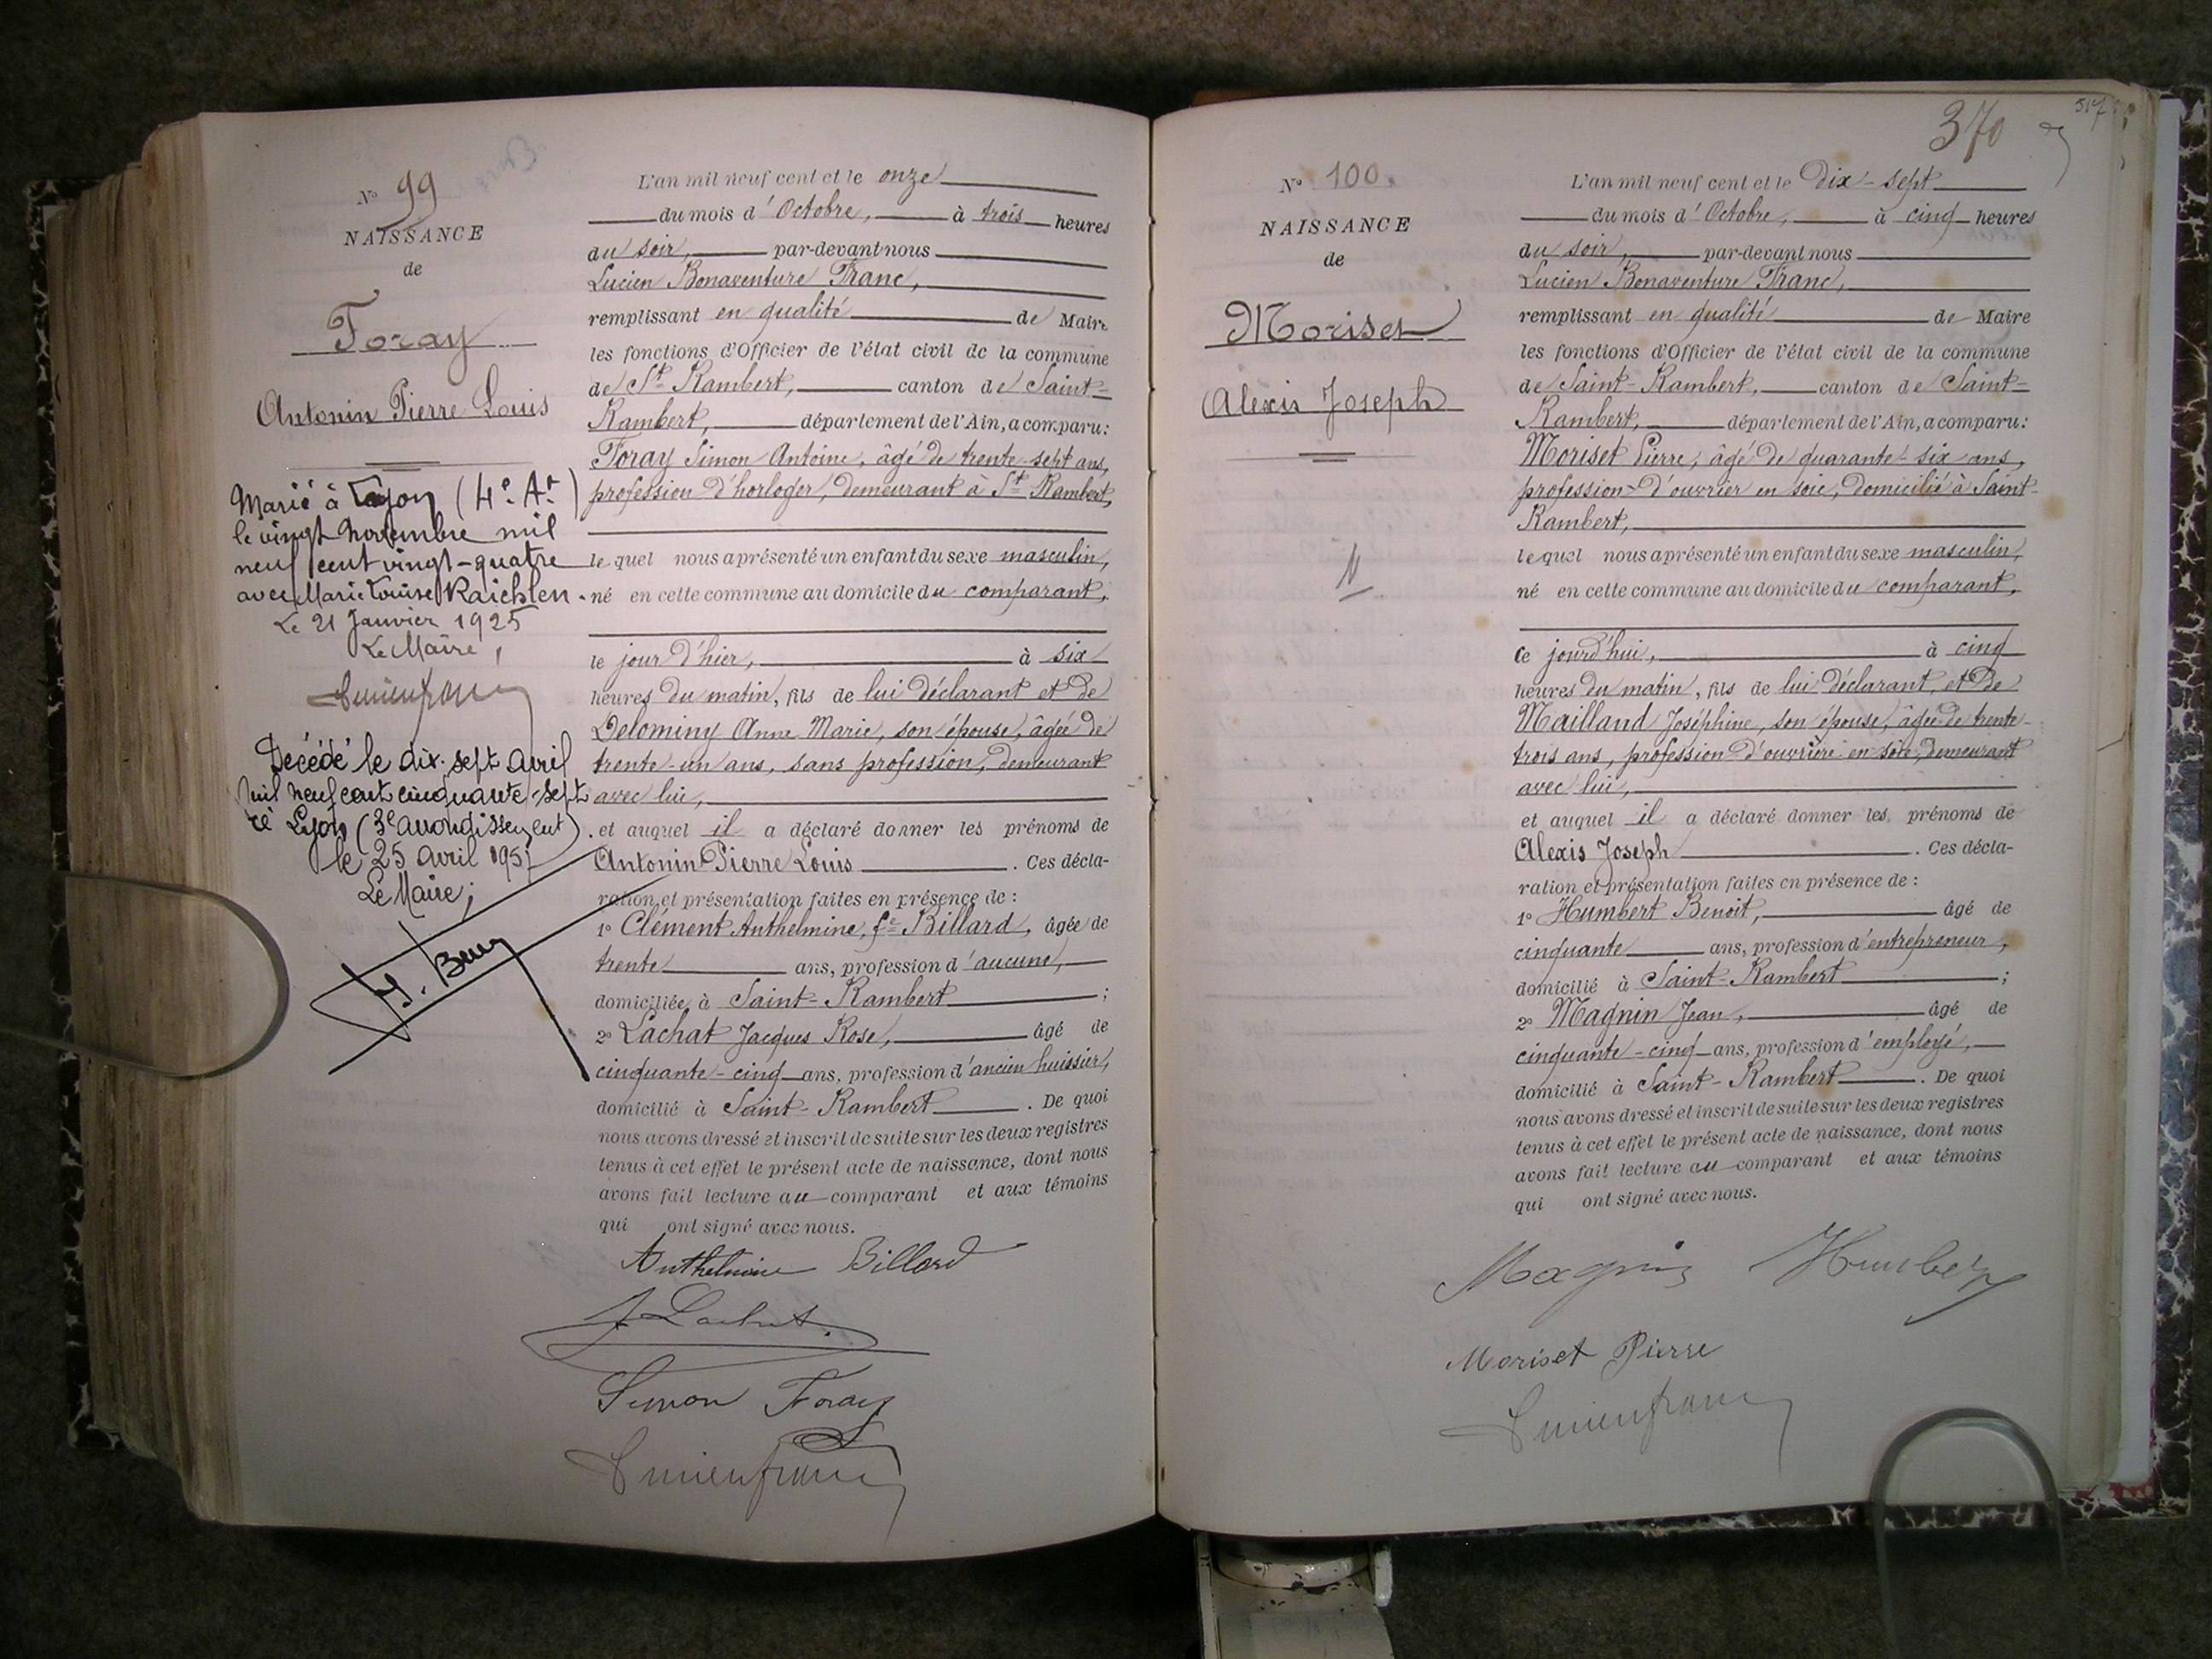 N° 99
NAISSANCE
de
Foray
Antonin Pierre Louis
Marié à Lyon (4e Ar)
le vingt Novembre mil
neuf cent vingt-quatre
avec Marie Louise Raichlen.
Le 21 Janvier 1925
Le Maire,
Lucien franc
Décédé le dix-sept avril
mil neuf cent cinquante-sept
à Lyon (3e arrondissement).
le 25 avril 1957
Le Maire;
L'an mil neuf cent et le onze
du mois d'Octobre, à trois heures
du soir, par-devant nous
Lucien Bonaventure Franc,
remplissant en qualité de Maire
les fonctions d'Officier de l'état civil de la commune
de St Rambert, canton de Saint-
Rambert, département de l'Ain, a comparu:
Foray Simon Antoine, âgé de trente-sept ans,
profession d'horloger, demeurant à St Rambert,
lequel nous a présenté un enfant du sexe masculin,
né en cette commune au domicile du comparant,
le jour d'hier, à six
heures du matin, fils de lui déclarant et de
Delominy Anne Marie, son épouse, âgée de
trente-un ans, sans profession, demeurant
avec lui,
et auquel il a déclaré donner les prénoms de
Antonin Pierre Louis. Ces décla-
ration et présentation faites en présence de :
1° Clément Anthelmine, fe Billard, âgée de
trente ans, profession d'aucune,
domiciliée à Saint-Rambert ;
2° Lachat Jacques Rose, âgé de
cinquante-cinq ans, profession d'ancien huissier,
domicilié à Saint-Rambert. De quoi
nous avons dressé et inscrit de suite sur les deux registres
tenus à cet effet le présent acte de naissance, dont nous
avons fait lecture au comparant et aux témoins
qui ont signé avec nous.
Anthelmine Billard
J Lachat
Simon Foray
Lucien franc
370
517
N° 100
NAISSANCE
de
Moriset
Alexis Joseph
L'an mil neuf cent et le Dix-sept
du mois d'Octobre, à cinq heures
du soir, par-devant nous
Lucien Bonaventure Franc,
remplissant en qualité de Maire
les fonctions d'Officier de l'état civil de la commune
de Saint-Rambert, canton de Saint-
Rambert, département de l'Ain, a comparu:
Moriset Pierre, âgé de quarante-six ans,
profession d'ouvrier en soie, domicilié à Saint-
Rambert,
lequel nous a présenté un enfant du sexe masculin,
né en cette commune au domicile du comparant,
ce jourd'hui, à cinq
heures du matin, fils de lui déclarant et de
Mailland Joséphine, son épouse, âgée de trente-
trois ans, profession d'ouvrière en soie, demeurant
avec lui,
et auquel il a déclaré donner les prénoms de
Alexis Joseph. Ces décla-
ration et présentation faites en présence de :
1° Humbert Benoit, âgé de
cinquante ans, profession d'entrepreneur,
domicilié à Saint-Rambert ;
2° Magnin Jean, âgé de
cinquante-cinq ans, profession d'employé,
domicilié à Saint-Rambert. De quoi
nous avons dressé et inscrit de suite sur les deux registres
tenus à cet effet le présent acte de naissance, dont nous
avons fait lecture au comparant et aux témoins
qui ont signé avec nous.
Magnin Humbert
Moriset Pierre
Lucien franc